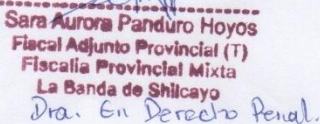 Sara Aurora Panduro Hoyos
Fiscal Adjunto Provincial (T)
Fiscalía Provincial Mixta
La Banda de Shilcayo
Dra. En Derecho Penal.